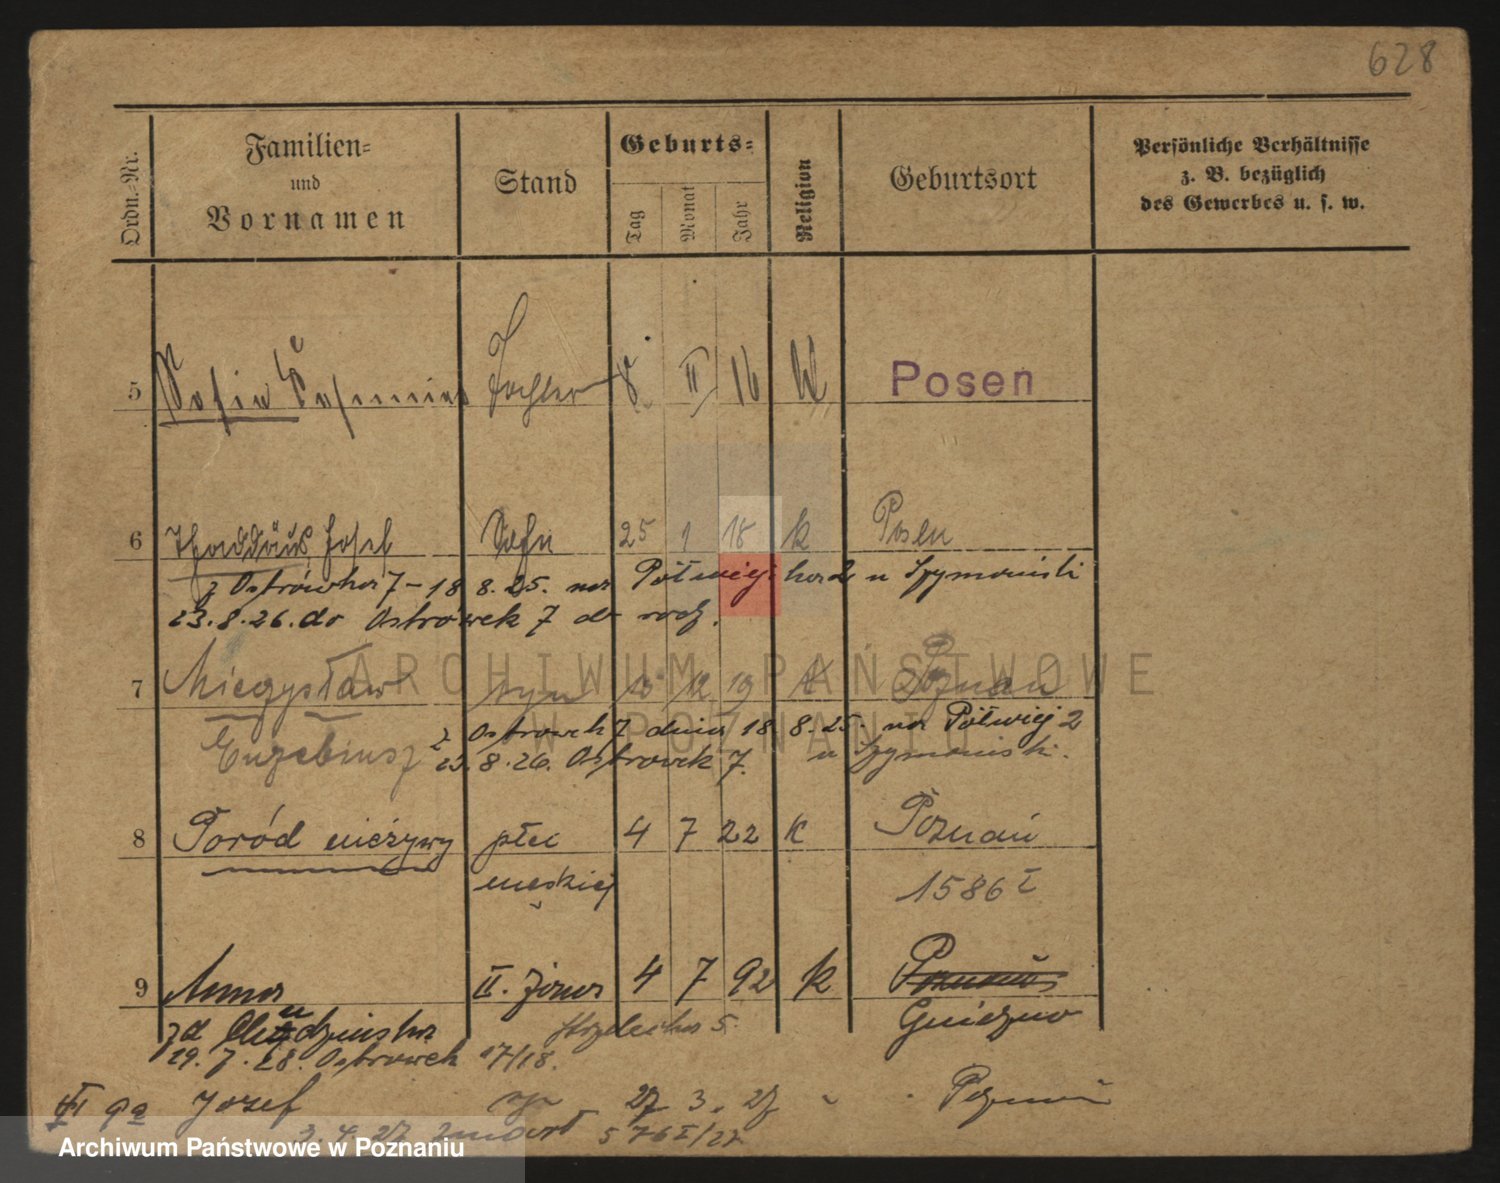 628
Ordn.-Nr.
Familien-
und
Vornamen
Stand
Geburts-
Tag
Monat
Jahr
Religion
Geburtsort
Persönliche Verhältnisse
z. B. bezüglich
des Gewerbes u. s. w.
5 Sofie Tochter 8. II 16 K Posen
6 Thaddäus Josef Sohn 25 1 18 k Posen
z Ostrówka 7 – 18 8. 25. na Półwiejska 2 u Szymański
23. 8. 26. do Ostrówek 7 do rodz.
7 Mieczysław syn 12 19 k Poznań
Euzebiusz z Ostrowek 7 dnia 18 8. 25. na Półwiej 2
23. 8. 26. Ostrowek 7. u Szymański.
8 Poród nieżywy płci 4 7 22 k Poznań
męskiej 1586 I
9 Anna II. żona 4 7 92 k Poznań
zd Gniezno
29. 7. 28. Ostrowek 17/18. Strzelecka 5.
VI 9a Józef syn 27 3. 27 Poznań
3. 4. 27 zmarł 576 I/27
ARCHIWUM PAŃSTWOWE
W POZNANIU
Archiwum Państwowe w Poznaniu